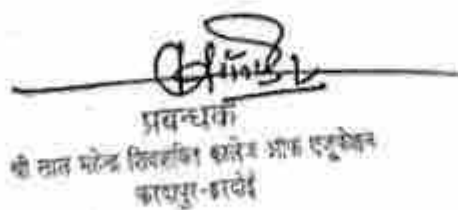 प्रबन्धक
श्री लाल महेन्द्र शिवशक्ति कालेज ऑफ एजूकेशन
-हरदोई